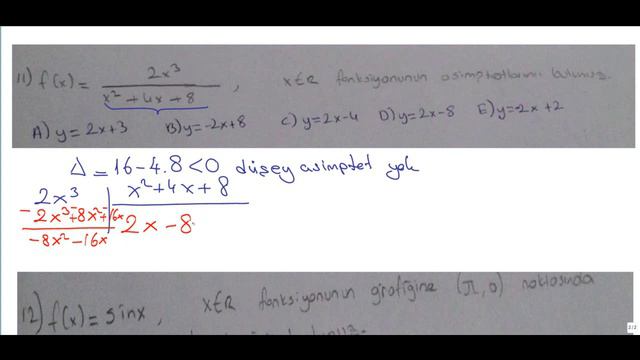 11) f(x) = 2x³ / x² + 4x + 8 , x∈R fonksiyonunun asimptotlarını bulunuz.
A) y = 2x+3 B) y=-2x+8 C) y=2x-4 D) y=2x-8 E) y=-2x+2
Δ = 16 - 4.8 < 0 düşey asimptot yok
2x³ | x² + 4x + 8
-2x³ + 8x² + 16x | 2x - 8
-8x² - 16x
12) f(x) = sinx , x∈R fonksiyonunun grafiğine (π, 0) noktasında
2/2